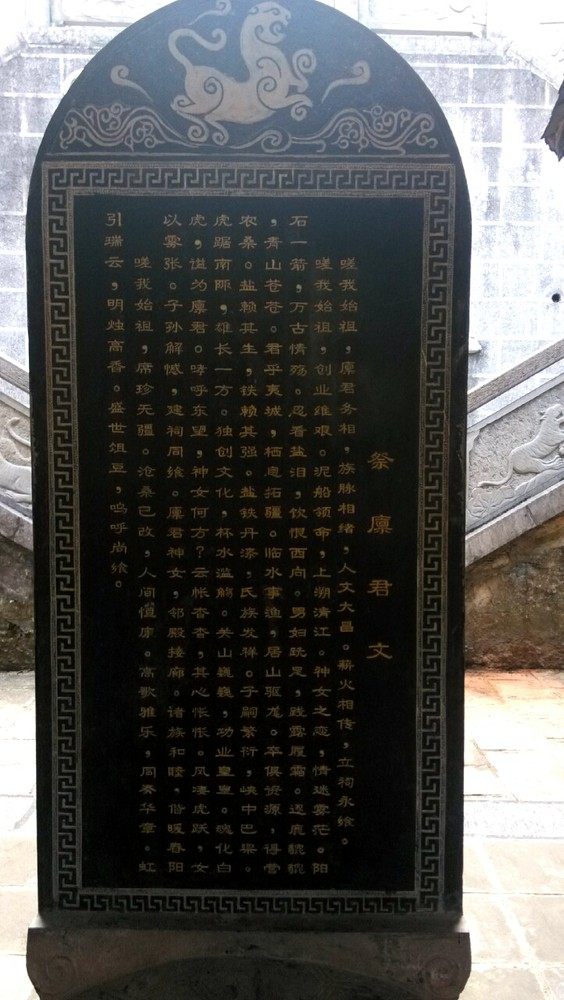 祭廪君文
嗟我始祖,廪君务相,族脉相绪,人文大昌。薪火相传,立祠永飨。
嗟我始祖,创业维艰。泥船领命,上溯清江。神女之恋,情迷雾茫。阳
石一箭,万古情殇。忍看盐泪,饮恨西向。男妇跣足,践露履霜。逐鹿
,青山苍苍。君乎夷城,栖息拓疆。临水事渔,居山驱龙。卒俱资源,得营
农桑。盐赖其生,铁赖其强。盐铁丹漆,氏族发祥。子嗣繁衍,峡中巴梁。
虎踞南陲,雄长一方。独创文化,杯水滥觞。关山巍巍,功业皇皇。魂化白
虎,谥为廪君。哮呼东望,神女何方?云帐杳杳,其心怅怅。风凄虎跃,女
以雾张。子孙解憾,建祠同飨。廪君神女,邻殿接廊。诸族和睦,偕暖春阳
嗟我始祖,席珍无疆。沧桑已改,人间恒康。高歌雅乐,同奏华章。虹
引瑞云,明烛高香。盛世俎豆,呜呼尚飨。